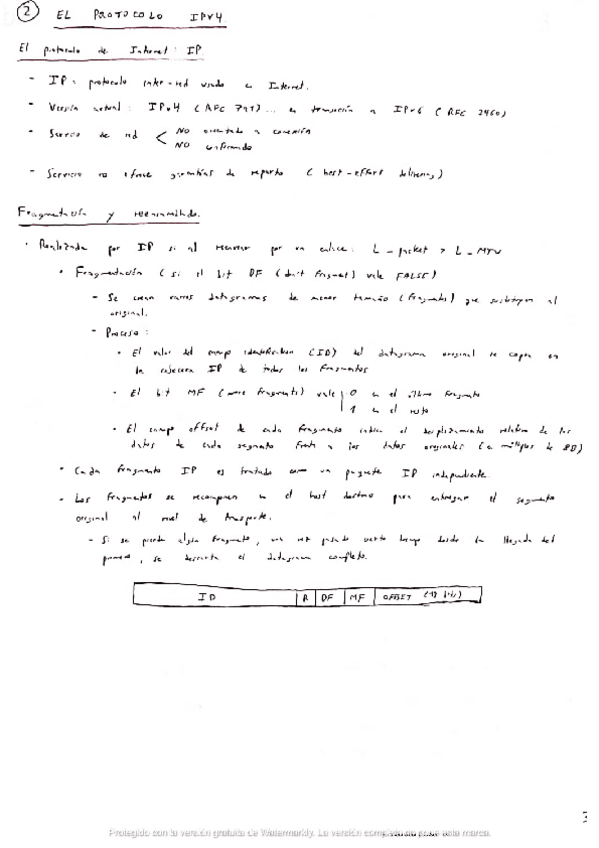 2 EL PROTOCOLO IPV4.
El protocolo de Internet: IP.
- IP: protocolo inter-red usado en Internet.
- Versión actual: IPv4 (RFC 791)... en transición a IPv6 (RFC 2460)
- Servicio de red < NO orientado a conexión
NO confirmado
- Servicio no ofrece garantías de reparto (best-effort delivery)
Fragmentación y reensamblado.
· Realizada por IP si al reenviar por un enlace: L_packet > L_MTU
· Fragmentación (si el bit DF (don't fragment) vale FALSE)
- Se crean varios datagramas de menor tamaño (fragmentos) que sustituyen al
original.
- Proceso:
· El valor del campo identification (ID) del datagrama original se copia en
la cabecera IP de todos los fragmentos
· El bit MF (more fragments) vale 0 en el último fragmento
1 en el resto
· El campo offset de cada fragmento indica el desplazamiento relativo de los
datos de cada segmento frente a los datos originales (en múltiplos de 8B)
· Cada fragmento IP es tratado como un paquete IP independiente.
· Los fragmentos se recomponen en el host destino para entregar el segmento
original al nivel de transporte.
- Si se pierde algún fragmento, una vez pasado cierto tiempo desde la llegada del
primero, se descarta el datagrama completo.
ID R DF MF OFFSET (13 bits)
Protegido con la versión gratuita de Watermarkly. La versión completa no pone esta marca.